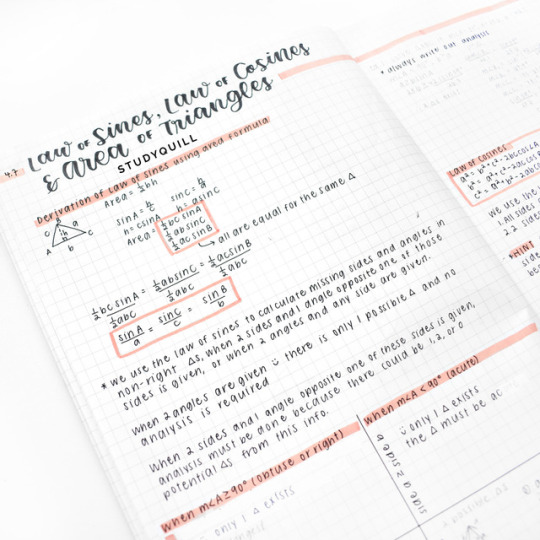 4.7 Law of Sines, Law of Cosines
& Area of Triangles
STUDYQUILL
Derivation of Law of Sines using area formula
Area = ½bh
sinA = h/c sinC = h/a
h = csinA h = asinC
Area = ½bcsinA
½absinC
½acsinB
→ all are equal for the same Δ
B
c a
h
A b C
½bcsinA/½abc = ½absinC/½abc = ½acsinB/½abc
sinA/a = sinC/c = sinB/b
* we use the law of sines to calculate missing sides and angles in
non-right Δs, when 2 sides and 1 angle opposite one of those
sides is given, or when 2 angles and any side are given.
When 2 angles are given ü there is only 1 possible Δ and no
analysis is required
When 2 sides and 1 angle opposite one of these sides is given,
analysis must be done because there could be 1, 2, or 0
potential Δs from this info.
when m<A≥90° (obtuse or right)
only 1 Δ exists
when m<A<90° (acute)
side a ≥ side
ü only 1 Δ exists
the Δ must be ac
*always write out analysis
Law of Cosines
a² = b² + c² - 2bccosA
b² = a² + c² - 2accos
c² = a² + b² - 2ab
We use the
1. All sides
2. 2 sides
*HINT
side
bec